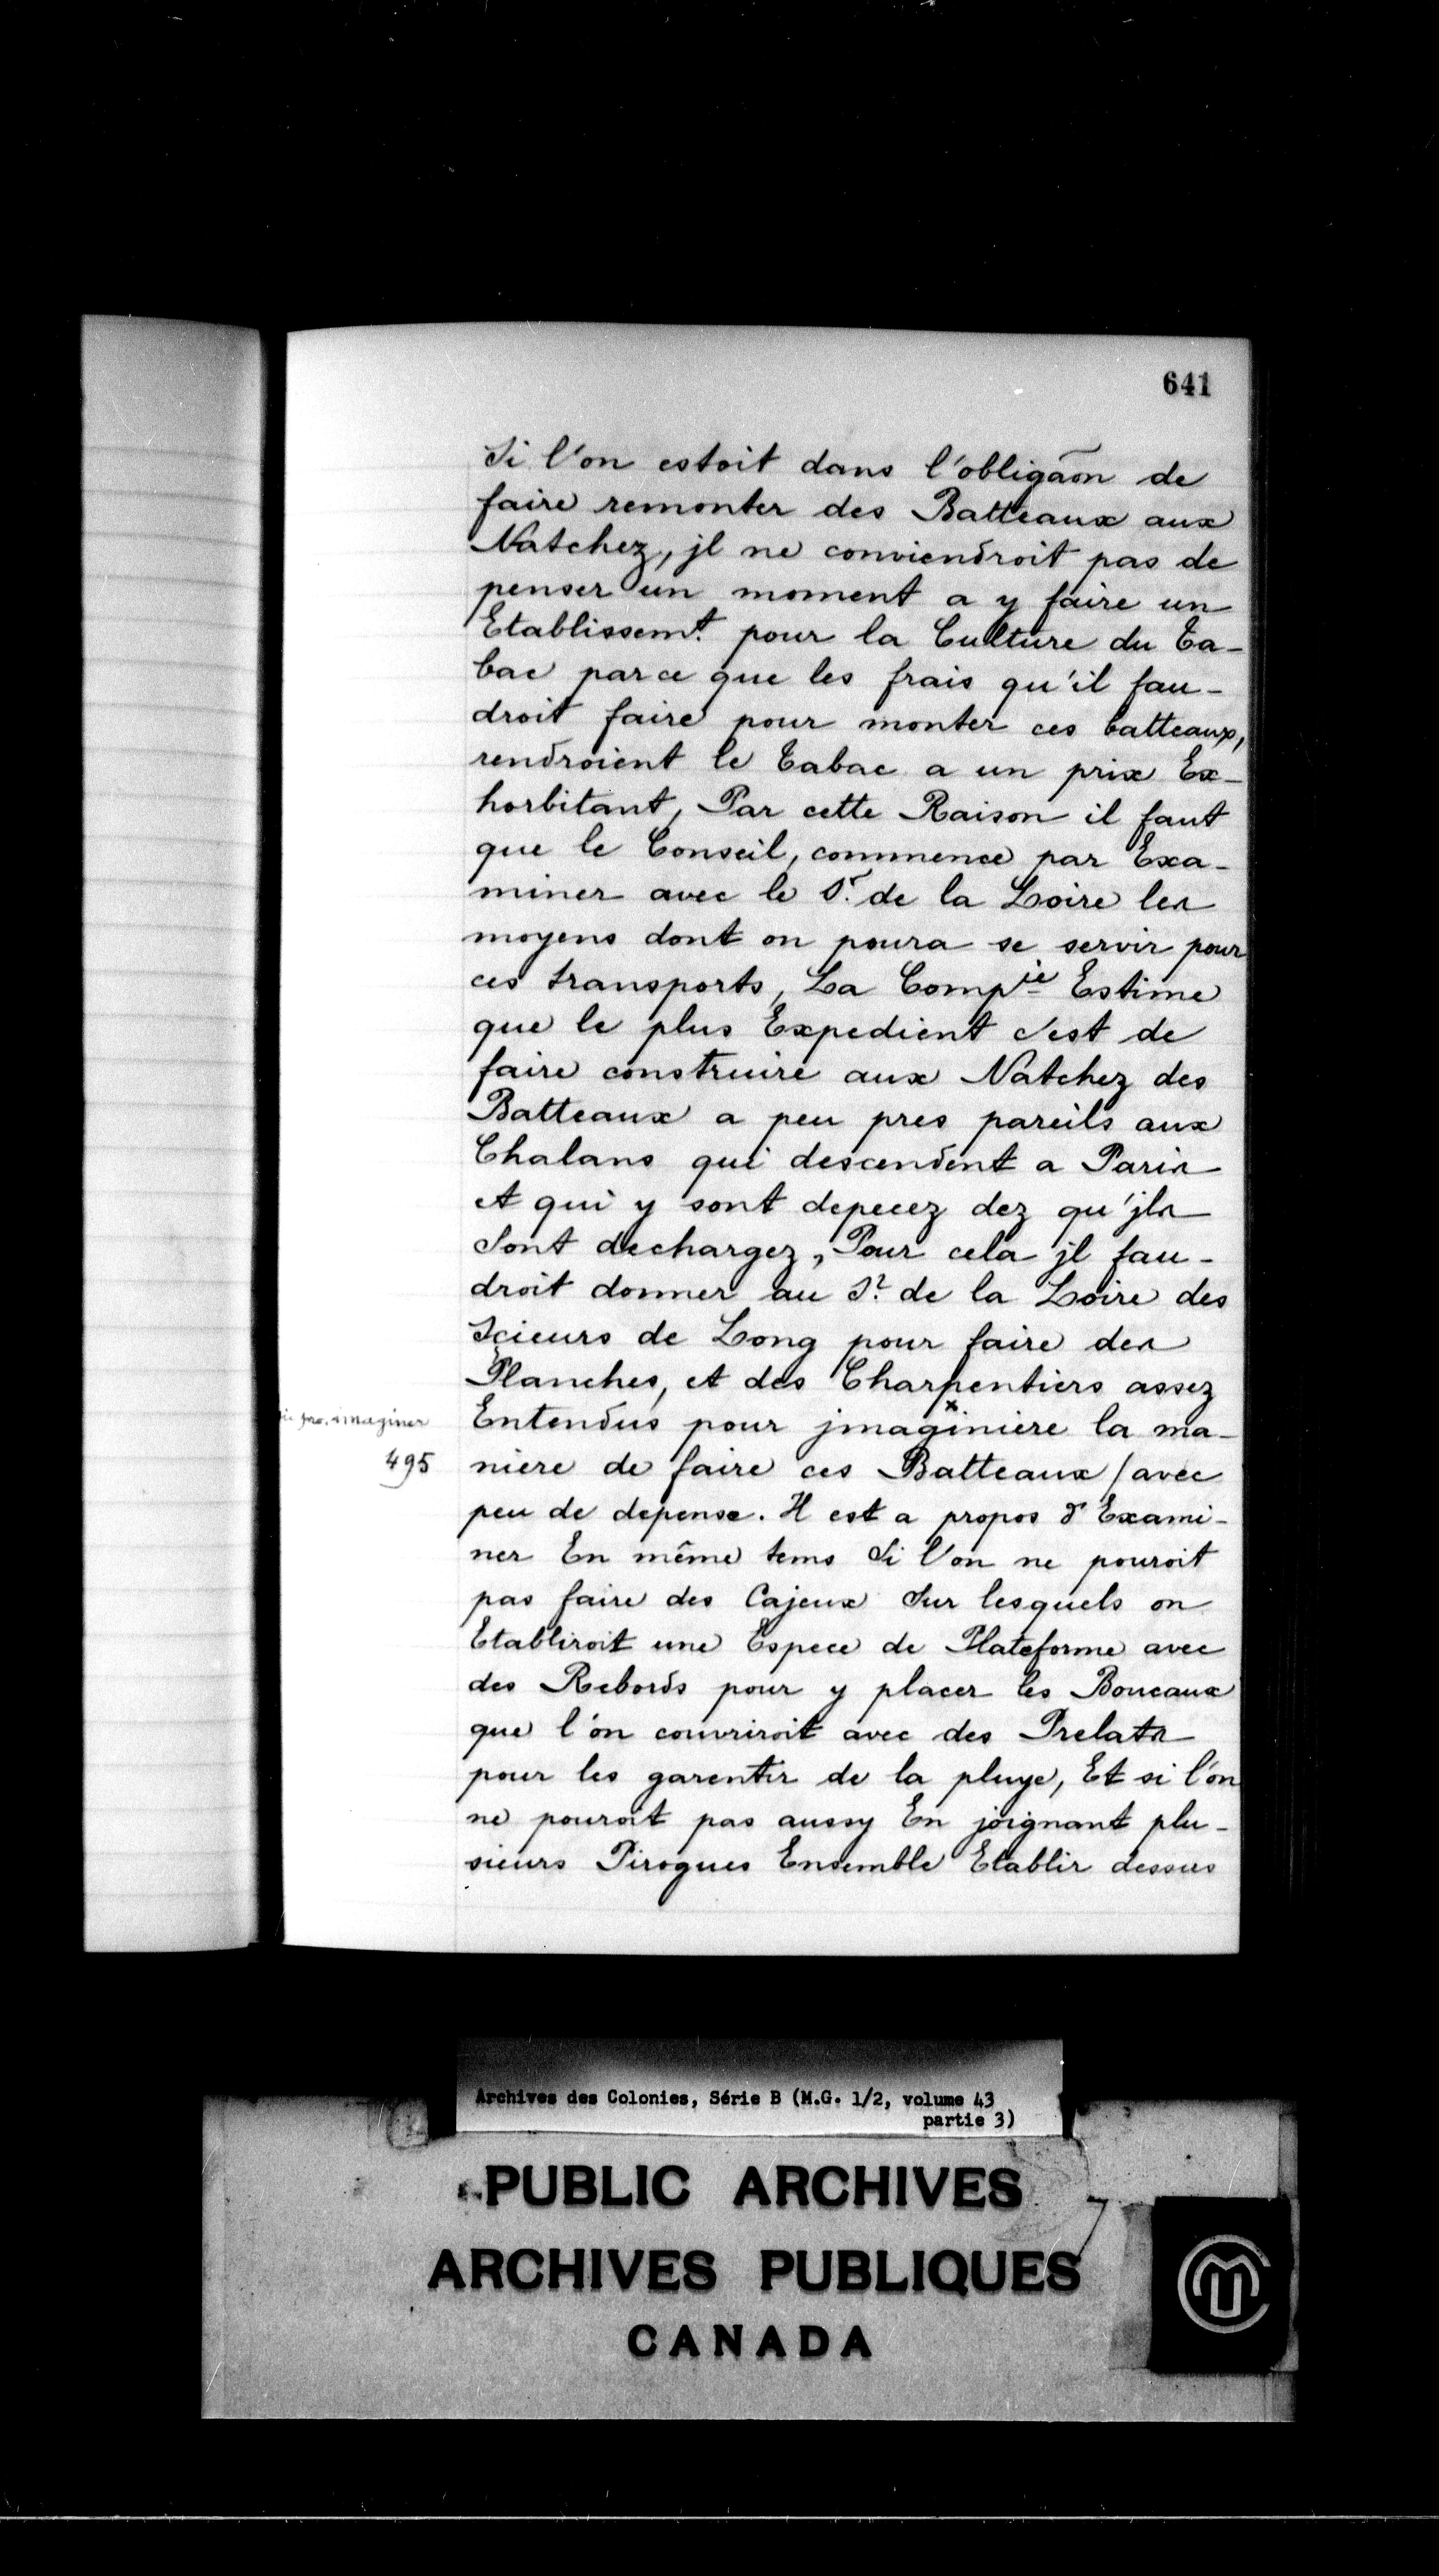 641
Si l'on estoit dans l'obligãon de
faire remonter des Batteaux aux
Natchez, jl ne conviendroit pas de
penser un moment a y faire un
Etablissemt. pour la Culture du Ta-
bac parce que les frais qu'il fau-
droit faire pour monter ces batteaux,
rendroient le Tabac a un prix Ex-
horbitant, Par cette Raison il faut
que le Conseil, commence par Exa-
miner avec le Sr. de la Loire les
moyens dont on poura se servir pour
ces transports, La Compie Estime
que le plus Expedient c'est de
faire construire aux Natchez des
Batteaux a peu pres pareils aux
Chalans qui descendent a Paris
et qui y sont depecez dez qu'jls
Sont dechargez, Pour cela jl fau-
droit donner au Sr. de la Loire des
Scieurs de Long pour faire des
Planches, et des Charpentiers assez
Entendus pour jmaginiere la ma-
sic pro. imaginer
495
niere de faire ces Batteaux / avec
peu de depense. Il est a propos d'Exami-
ner En même tems Si l'on ne pouroit
pas faire des Cajeux Sur lesquels on
Etabliroit une Espece de Plateforme avec
des Rebords pour y placer les Boucaux
que l'on couvriroit avec des Prelats
pour les garentir de la pluye, Et si l'on
ne pouroit pas aussy En joignant plu-
sieurs Pirogues Ensemble Etablir dessus
Archives des Colonies, Série B (M.G. 1/2, volume 43
partie 3)
PUBLIC ARCHIVES
ARCHIVES PUBLIQUES
CANADA